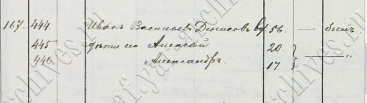 167. 444 Иванъ Васильевъ Денисовъ вд 56. — безъ
445 дѣти его Алексѣй 20.
446. Александръ. 17. — "